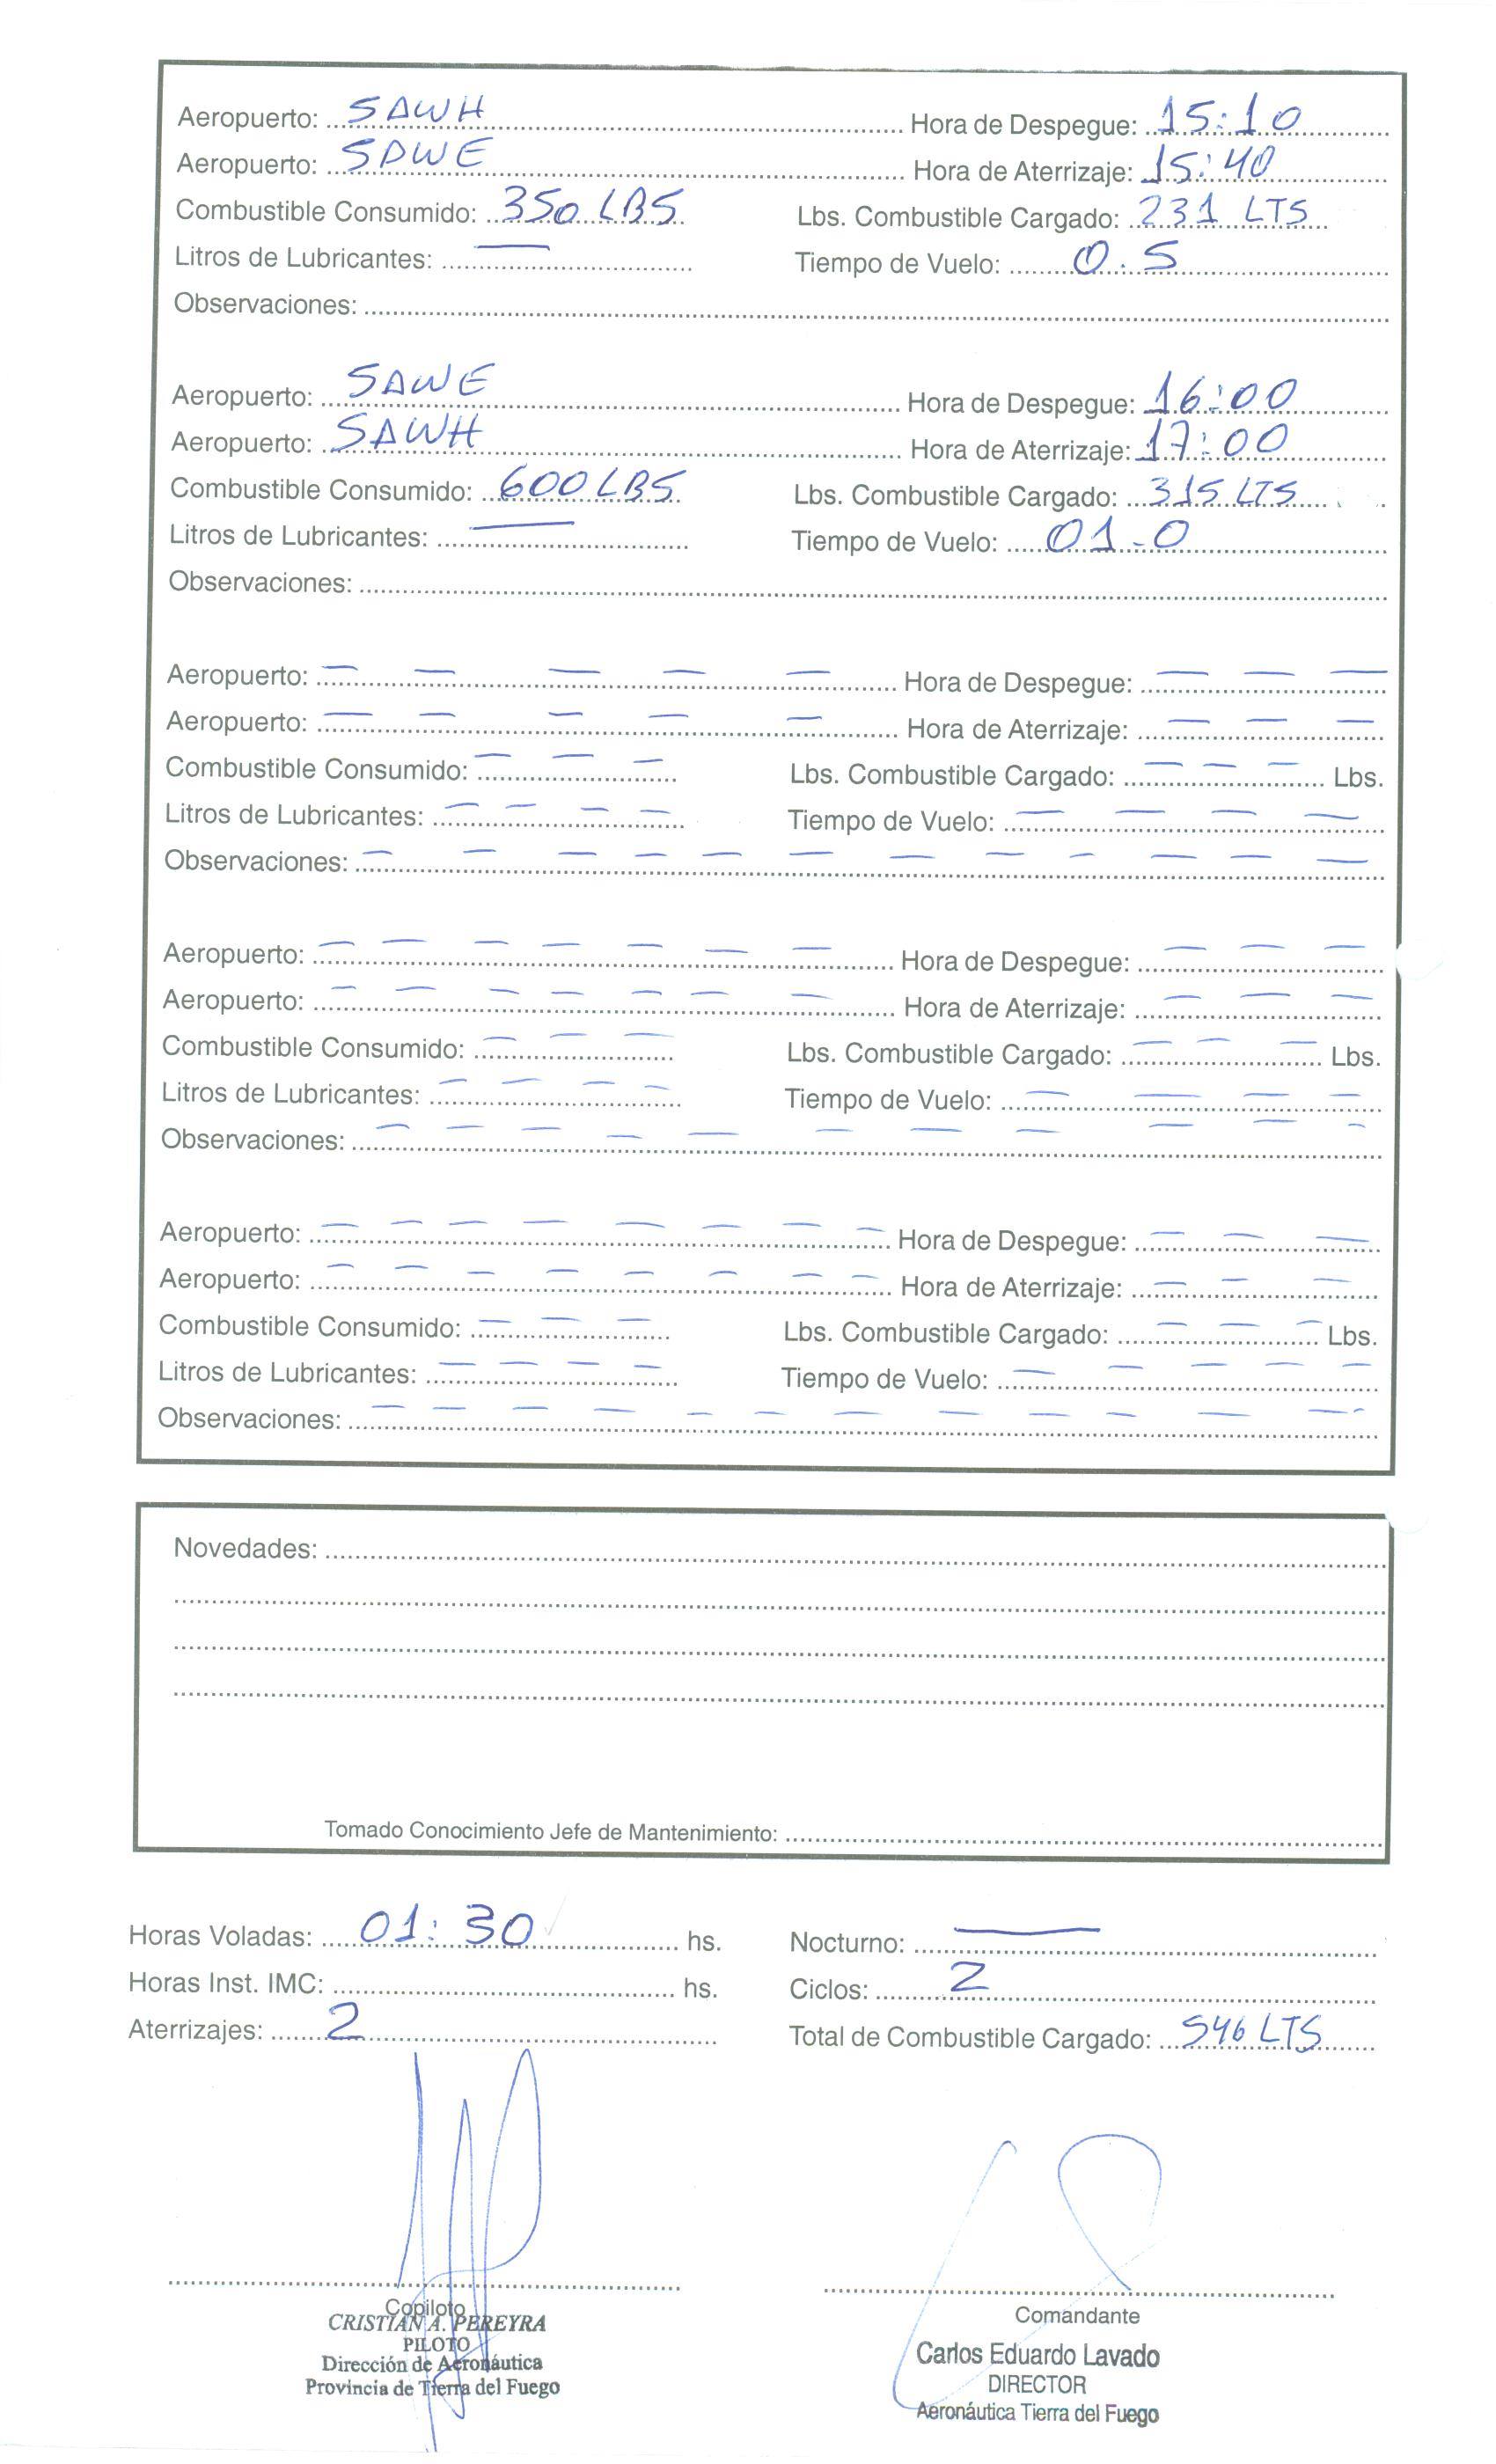 Aeropuerto: SAWH Hora de Despegue: 15:10
Aeropuerto: SAWE Hora de Aterrizaje: 15:40
Combustible Consumido: 350 LBS Lbs. Combustible Cargado: 231 LTS
Litros de Lubricantes: — Tiempo de Vuelo: 0.5
Observaciones:
Aeropuerto: SAWE Hora de Despegue: 16:00
Aeropuerto: SAWH Hora de Aterrizaje: 17:00
Combustible Consumido: 600 LBS Lbs. Combustible Cargado: 315 LTS
Litros de Lubricantes: — Tiempo de Vuelo: 01-0
Observaciones:
Aeropuerto: — — — — — Hora de Despegue: — — —
Aeropuerto: — — — — — Hora de Aterrizaje: — — —
Combustible Consumido: — — — Lbs. Combustible Cargado: — — — Lbs.
Litros de Lubricantes: — — — — Tiempo de Vuelo: — — — —
Observaciones: — — — — — — — — — — — —
Aeropuerto: — — — — — — — Hora de Despegue: — — —
Aeropuerto: — — — — — — — Hora de Aterrizaje: — — —
Combustible Consumido: — — — Lbs. Combustible Cargado: — — — Lbs.
Litros de Lubricantes: — — — — Tiempo de Vuelo: — — — —
Observaciones: — — — — — — — — — — —
Aeropuerto: — — — — — — — — Hora de Despegue: — — —
Aeropuerto: — — — — — — — — Hora de Aterrizaje: — — —
Combustible Consumido: — — — Lbs. Combustible Cargado: — — — Lbs.
Litros de Lubricantes: — — — — Tiempo de Vuelo: — — — — —
Observaciones: — — — — — — — — — — — —
Novedades:
Tomado Conocimiento Jefe de Mantenimiento:
Horas Voladas: 01:30 hs. Nocturno: —
Horas Inst. IMC: hs. Ciclos: 2
Aterrizajes: 2 Total de Combustible Cargado: 546 LTS
Copiloto Comandante
CRISTIAN A. PEREYRA
PILOTO
Dirección de Aeronáutica
Provincia de Tierra del Fuego
Carlos Eduardo Lavado
DIRECTOR
Aeronáutica Tierra del Fuego